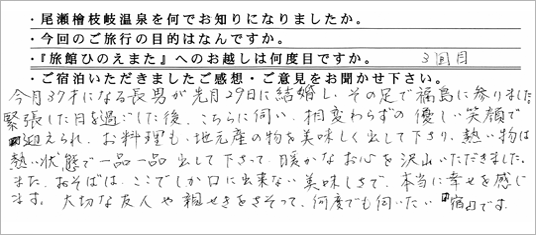 ・尾瀬檜枝岐温泉を何でお知りになりましたか。
・今回のご旅行の目的はなんですか。
・『旅館ひのえまた』へのお越しは何度目ですか。 3回目
・ご宿泊いただきましたご感想・ご意見をお聞かせ下さい。
今月37才になる長男が先月29日に結婚し、その足で福島に参りました
緊張した日を過ごした後、こちらに伺い、相変わらずの優しい笑顔で
迎えられ、お料理も、地元産の物を美味しく出して下さり、熱い物は
熱い状態で一品一品出して下さって、暖かなお心を沢山いただきました。
また、おそばは、ここでしか口に出来ない美味しさで、本当に幸せを感じ
ます。大切な友人や親せきをさそって、何度でも伺いたい宿です。